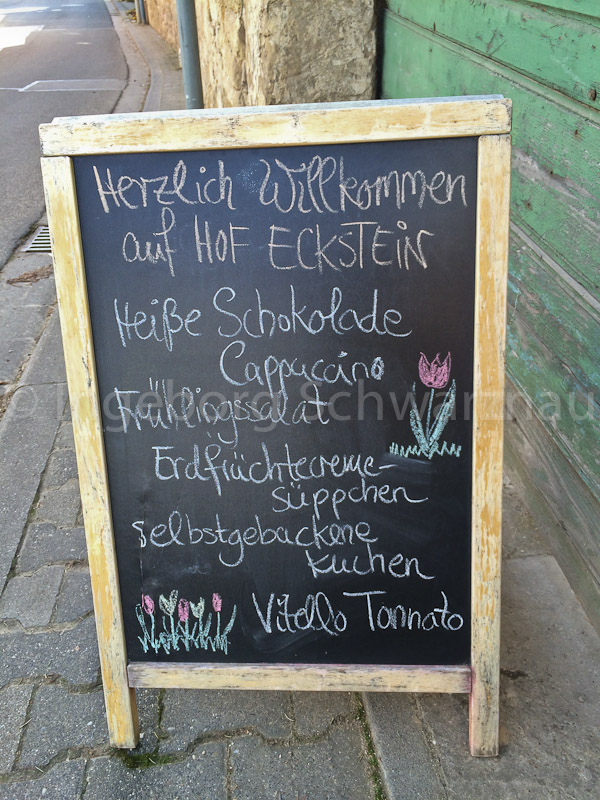 Herzlich Willkommen
auf HOF ECKSTEIN
Heiße Schokolade
Cappuccino
Frühlingssalat
Erdfrüchtecreme-
süppchen
selbstgebackene
Kuchen
Vitello Tonnato
© Ingeborg Schwarznau